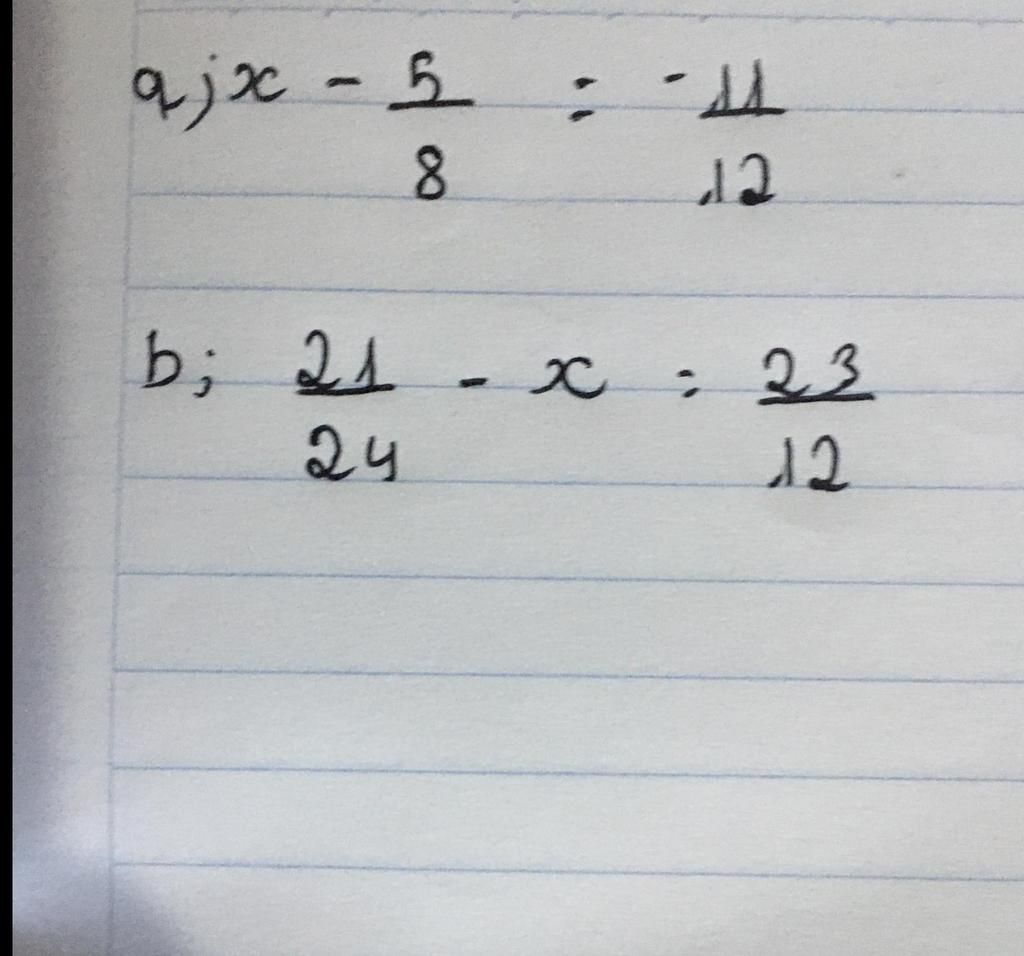 a; x - 5/8 = -11/12
b; 21/24 - x = 23/12